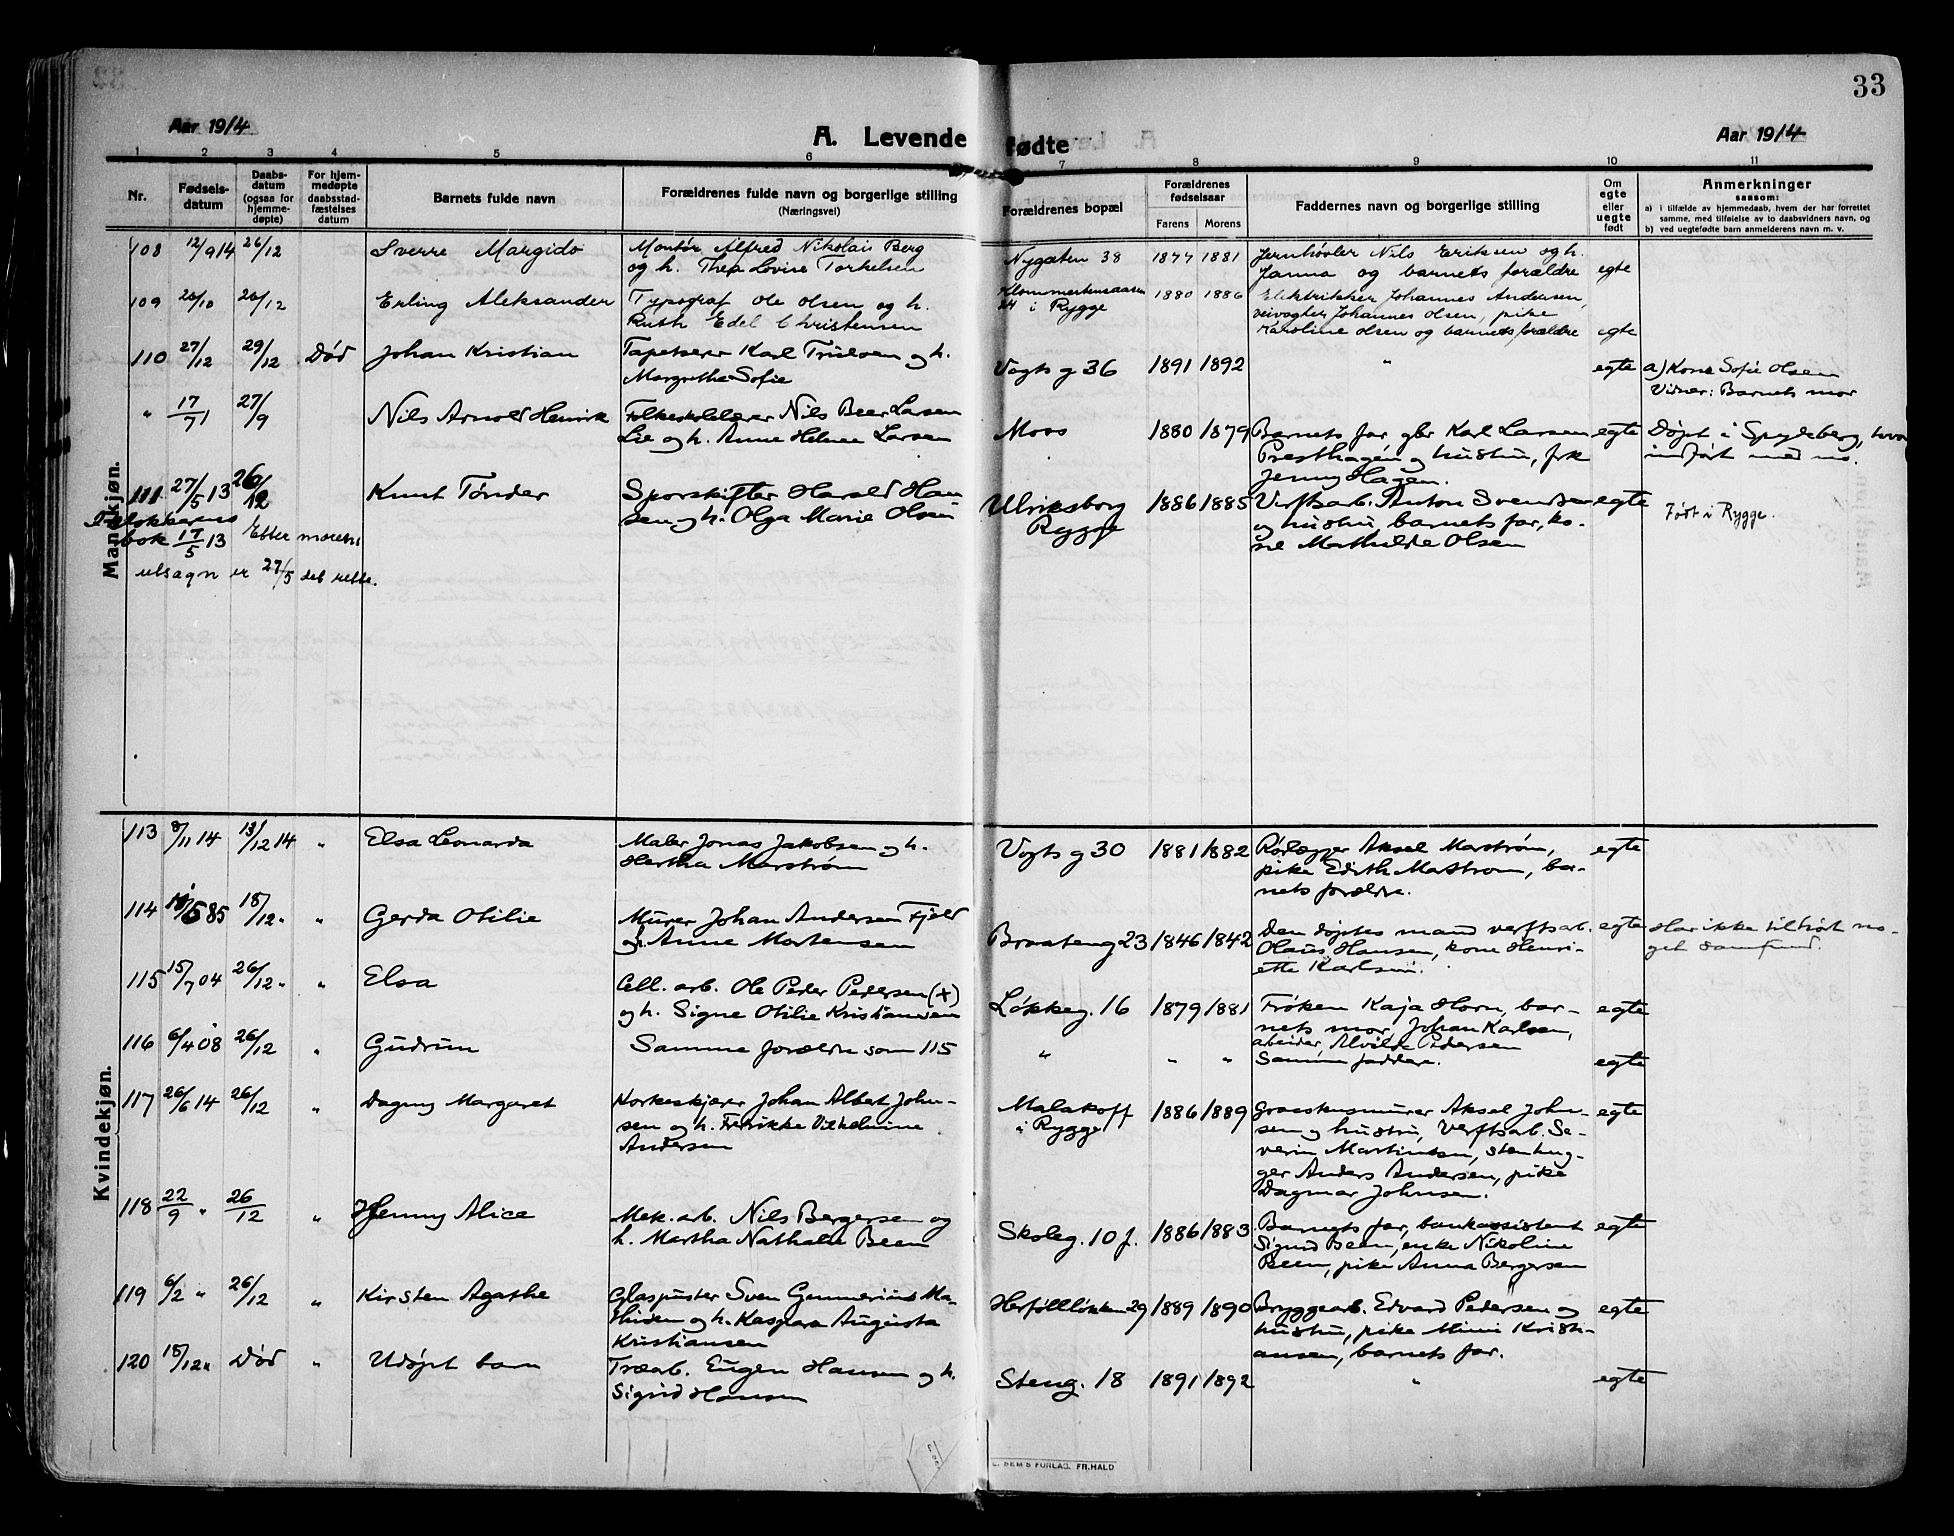 33
Aar 1914
A. Levende fødte
Aar 1914
1 2 3 4 5 6 7 8 9 10 11
Nr.
Fødsels-
datum
Daabs-
datum
(ogsaa for
hjemme-
døpte)
For hjem-
medøpte
daabsstad-
fæstelses
datum
Barnets fulde navn
Forældrenes fulde navn og borgerlige stilling
(Næringsvei)
Forældrenes bopæl
Forældrenes
fødselsaar
Farens Morens
Faddernes navn og borgerlige stilling
Om
egte
eller
uegte
født
Anmerkninger
saasom:
a) i tilfælde av hjemmedaab, hvem der har forrettet
samme, med tilføielse av to daabsvidners navn, og
b) ved uegtefødte barn anmelderens navn m. v.
Mandkjøn.
108 12/9 14 26/12 Sverre Margido
Montør Alfred Nikolai Berg
og h. Thea Lovise Torkelsen
Nygaten 38 1877 1881
Jernhøvler Nils Eriksen og h.
Janna og barnets forældre
egte
109 20/10 26/12 Erling Aleksander
Typograf Ole Olsen og h.
Ruth Edel Christensen
24 i Rygge 1880 1886
Elektrikker Johannes Andersen,
veivogter Johannes Olsen, pike
Karoline Olsen og barnets forældre
egte
110 27/12 29/12 Død Johan Kristian
Tapetserer Karl Trulsen og h.
Margrethe Sofie
Vogts g 36 1891 1892 " egte
a) Kone Sofie Olsen
Vidner: Barnets mor
" 17/7 27/9 Nils Arnold Henrik
Folkeskolelærer Nils Beer Larsen
Lie og h. Anne Helene Larsen
Moss 1880 1879
Barnets far, gbr Karl Larsen
Presthagen og hustru, frk
Jenny Hagen.
egte
Døpt i Spydeberg, hvor
indført med no.
111. 27/5 13 26/12 Knut Tønder
Sporskifter Harald Han
sen og h. Olga Marie Olsen
Ulriksborg
Rygge
1886 1885
Verftsarb. Anton Svendsen
og hustru, barnets far, ko-
ne Mathilde Olsen
egte
Født i Rygge.
I klokkerens
bok 17/5 13 Efter morens
utsagn er 27/5 det rette.
Kvindekjøn.
113 8/11 14 13/12 14 " Elsa Leonarda
Maler Jonas Jakobsen og h.
Hertha Marstrøm
Vogts g 30 1881 1882
Rørlægger Aksel Marstrøm,
pike Edith Mastrom, bar-
nets forældre.
egte
114 18/5 85 18/12 " " Gerda Otilie
Murer Johan Andersen Fjeld
og h. Anne Mortensen
Braateng 23 1846 1842
Den døptes mand verftsarb.
Olaus Hansen, kone Henri-
ette Karlsen.
egte
Har ikke tilhørt no-
get samfund.
115 15/7 04 26/12 " " Elsa
Cell. arb. Ole Peder Pedersen (+)
og h. Signe Otilie Kristiansen
Løkkeg. 16 1879 1881
Frøken Kaja Horn, bar-
nets mor, Johan Karlsen,
arbeider, Alvilde Pedersen
egte
116 6/4 08 26/12 " Gudrun
Samme forældre som 115
" " "
Samme faddere.
egte
117 26/6 14 26/12 " Dagny Margaret
Korkeskjærer Johan Albert John-
sen og h. Fredrikke Vilhelmine
Andersen
Malakoff
i Rygge
1886 1889
Graastensmurer Aksel John-
sen og hustru, verftsarb. Se-
verin Martinsen, stenhug-
ger Anders Andersen, pike
Dagmar Johnsen.
egte
118 22/9 " 26/12 " Jenny Alice
Mek. arb. Nils Bergersen og
h. Martha Nathalie Been
Skoleg. 10 f. 1886 1883
Barnets far, bankassistent
Sigurd Been, enke Nikoline
Been, pike Anna Bergersen
egte
119 6/2 " 26/12 " Kirsten Agathe
Glaspuster Sven Gunnerius Ma-
thisen og h. Kaspara Augusta
Kristiansen
Herføllløkken 29 1889 1890
Bryggearb. Edvard Pedersen og
hustru, pike Mimi Kristi-
ansen, barnets far.
egte
120 18/12 " Død " Udøpt barn
Træarb. Eugen Hansen og h.
Sigrid Hansen
Steng. 18 1891 1892 " egte
SEM'S FORLAG. FR.HALD